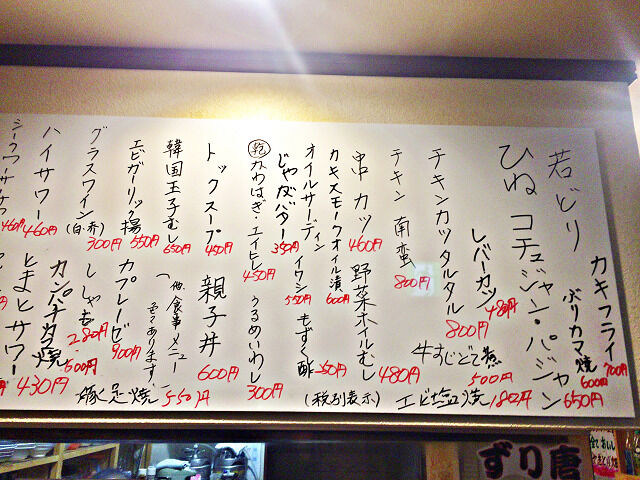 若どり
ひね コチュジャン・パジャン 650円
カキフライ 700円
ブリカマ焼 600円
レバーカツ 480円
チキンカツタルタル 800円
牛すじどて煮 500円
チキン南蛮 800円
エビ塩焼 180円
串カツ 460円
野菜ホイルむし 480円
カキスモークオイル漬 600円
オイルサーディン イワシ 550円
もずく酢
(税別表示)
じゃがバター 350円
乾 かわはぎ・エイヒレ 450円
うるめいわし 300円
トックスープ 450円
親子丼 600円
韓国玉子むし 650円
(他、食事メニュー
そてあります)
エビガーリック揚 550円
カプレーゼ 900円
豚足焼 550円
グラスワイン (白・赤) 300円
ししゃも 280円
ハイサワー 460円
カンパチカマ焼 600円
460円
とまとサワー 430円
ずり唐